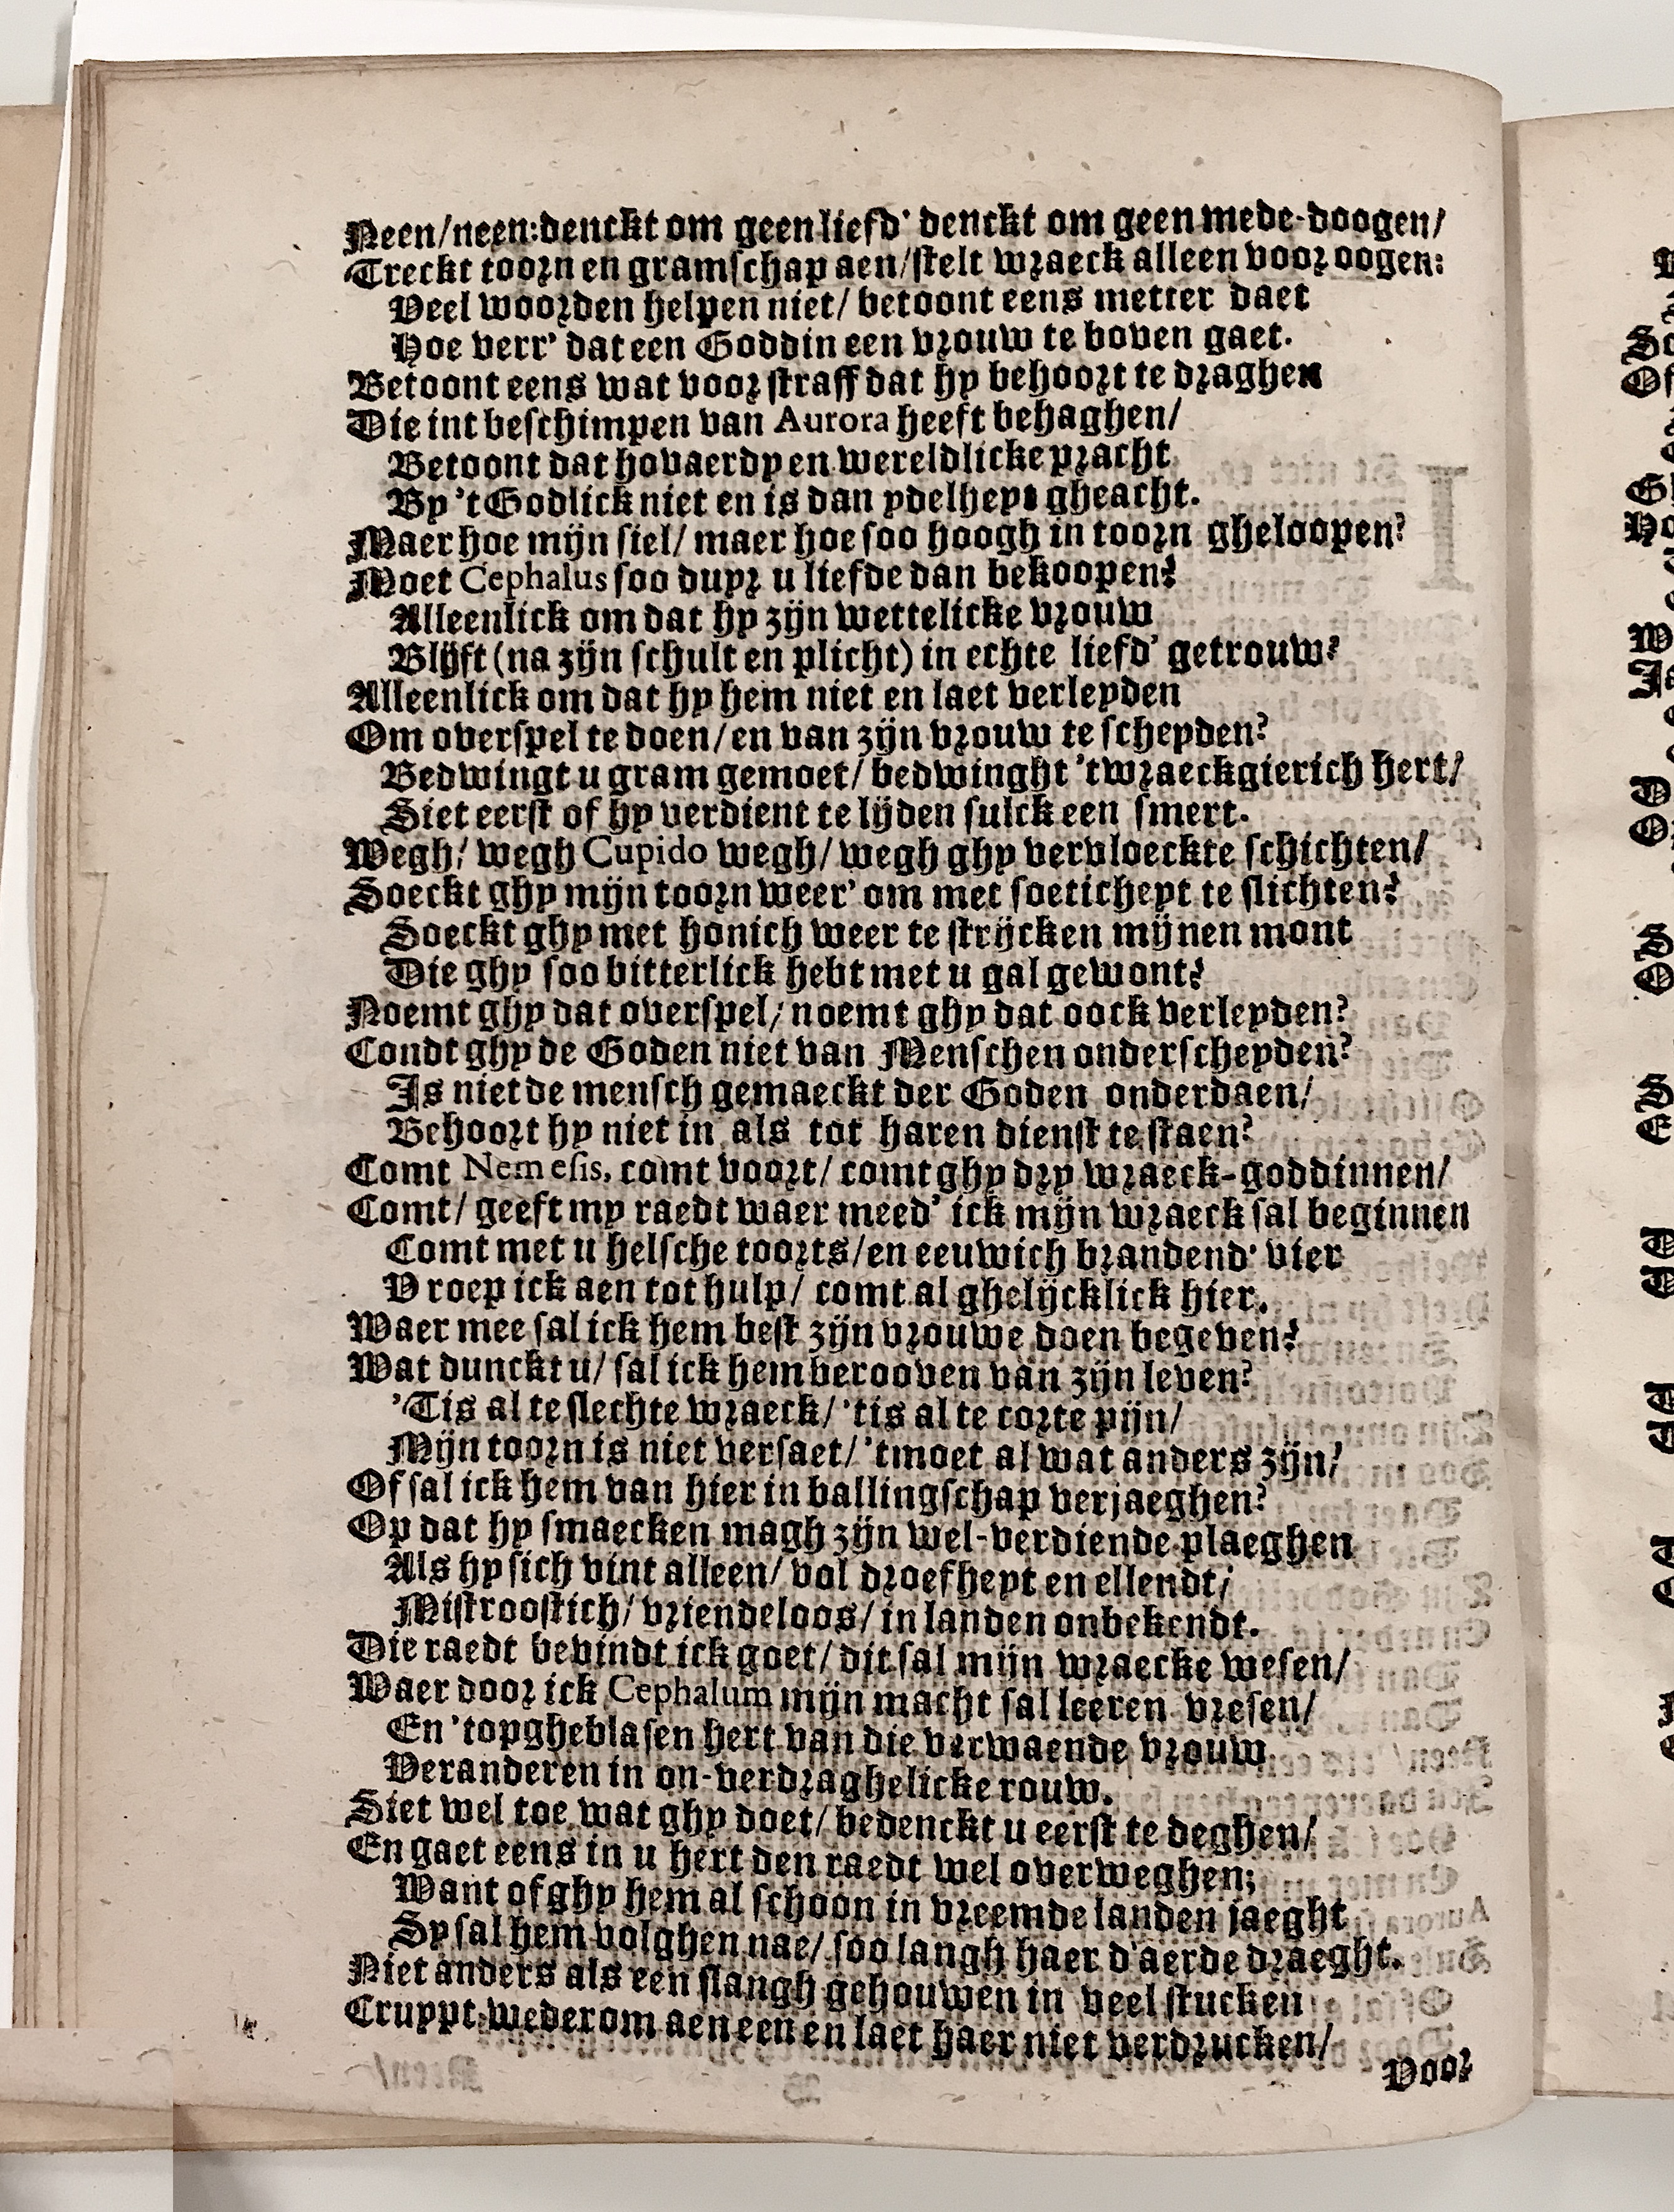 Neen/neen: denckt om geen liefd' denckt om geen mede-doogen/
Treckt toorn en gramschap aen/stelt wraeck alleen voor oogen:
Veel woorden helpen niet/ betoont eens metter daet
Hoe verr' dat een Goddin een vrouw te boven gaet.
Betoont eens wat voor straff dat hy behoort te draghen
Die int beschimpen van Aurora heeft behaghen/
Betoont dat hovaerdy en wereldlicke pracht
By 't Godlick niet en is dan ydelheyt gheacht.
Maer hoe mijn siel/ maer hoe soo hoogh in toorn gheloopen?
Moet Cephalus soo duyr u liefde dan bekoopen?
Alleenlick om dat hy zijn wettelicke vrouw
Blijft (na zijn schult en plicht) in echte liefd' getrouw?
Alleenlick om dat hy hem niet en laet verleyden
Om overspel te doen/en van zijn vrouw te scheyden?
Bedwingt u gram gemoet/ bedwinght 't wraeckgierich hert/
Siet eerst of hy verdient te lijden sulck een smert.
Wegh/ wegh Cupido wegh/ wegh ghy vervloeckte schichten/
Soeckt ghy mijn toorn weer' om met soeticheyt te slichten?
Soeckt ghy met honich weer te strijcken mijnen mont
Die ghy soo bitterlick hebt met u gal gewont?
Noemt ghy dat overspel/ noemt ghy dat oock verleyden?
Condt ghy de Goden niet van Menschen onderscheyden?
Is niet de mensch gemaeckt der Goden onderdaen/
Behoort hy niet in als tot haren dienst te staen?
Comt Nemesis, comt voort/ comt ghy dry wraeck-goddinnen/
Comt/ geeft my raedt waer meed' ick mijn wraeck sal beginnen
Comt met u helsche toorts/en eeuwich brandend' vier
V roep ick aen tot hulp/ comt al ghelijcklick hier.
Waer mee sal ick hem best zijn vrouwe doen begeven?
Wat dunckt u/ sal ick hem berooven van zijn leven?
'Tis al te slechte wraeck/ 'tis al te corte pijn/
Mijn toorn is niet versaet/ 'tmoet al wat anders zijn/
Of sal ick hem van hier in ballingschap verjaeghen?
Op dat hy smaecken magh zijn wel-verdiende plaeghen
Als hy sich vint alleen/ vol droefheyt en ellendt/
Mistroostich/ vriendeloos/ in landen onbekendt.
Die raedt bevindt ick goet/ dit sal mijn wraecke wesen/
Waer door ick Cephalum mijn macht sal leeren vresen/
En 'topgheblasen hert van die verwaende vrouw
Veranderen in on-verdraghelicke rouw.
Siet wel toe wat ghy doet/ bedenckt u eerst te deghen/
En gaet eens in u hert den raedt wel overweghen;
Want of ghy hem al schoon in vreemde landen jaeght
Sy sal hem volghen nae/ soo langh haer d'aerde draeght.
Niet anders als een slangh gehouwen in veel stucken
Cruypt wederom aen een en laet haer niet verdrucken/
Voor